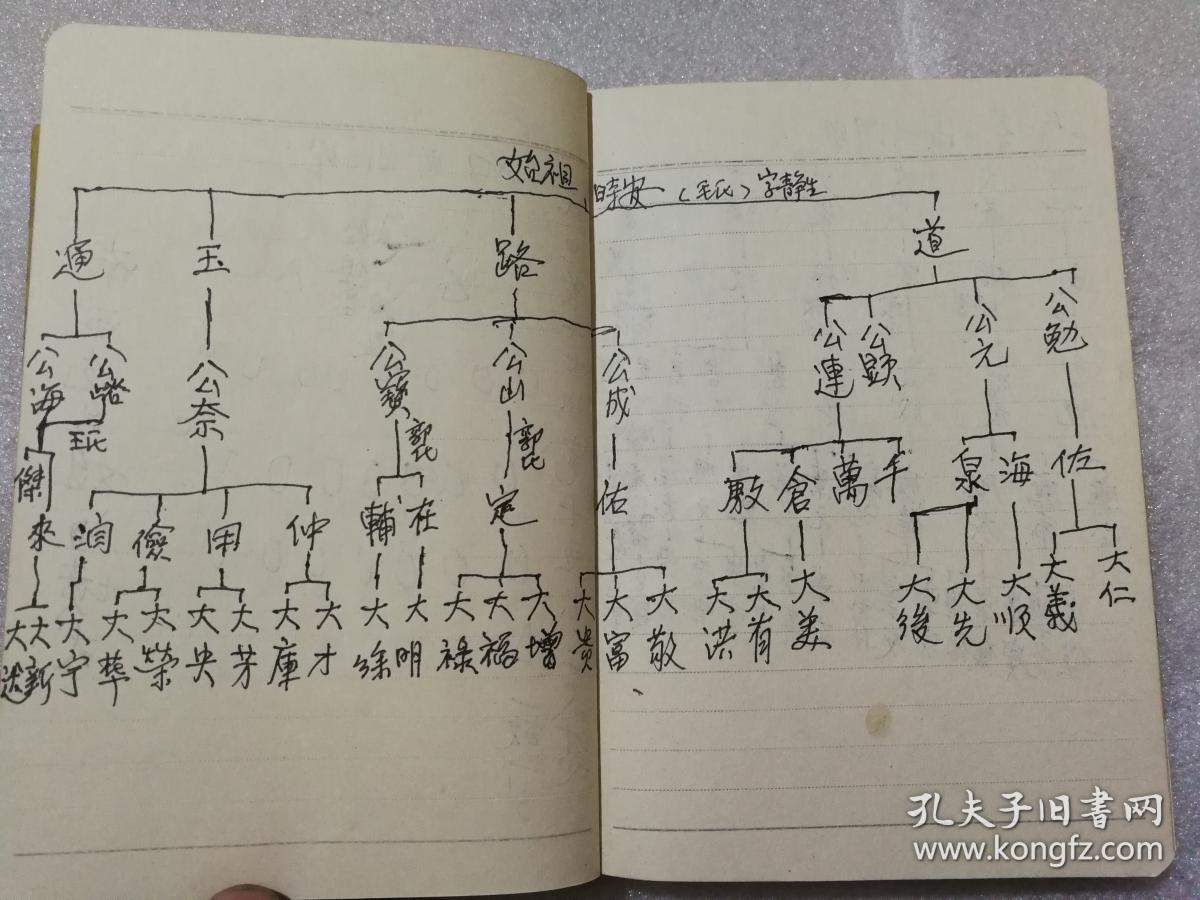 始祖 時安 (毛氏) 字靜生
通 玉 路 道
公海 公 公奈 公寶 公山 公成 公連 公顕 公元 公勉
郭氏 郭氏
傑 來 儉 用 仲 輔 在 定 佑 倉 萬 千 泉 海 佐
大达 大新 大宁 大華 大榮 大央 大芽 大庫 大才 大徐 大明 大禄 大福 大增 大贵 大富 大敬 大洪 大有 大美 大後 大先 大順 大義 大仁
孔夫子旧书网
www.kongfz.com